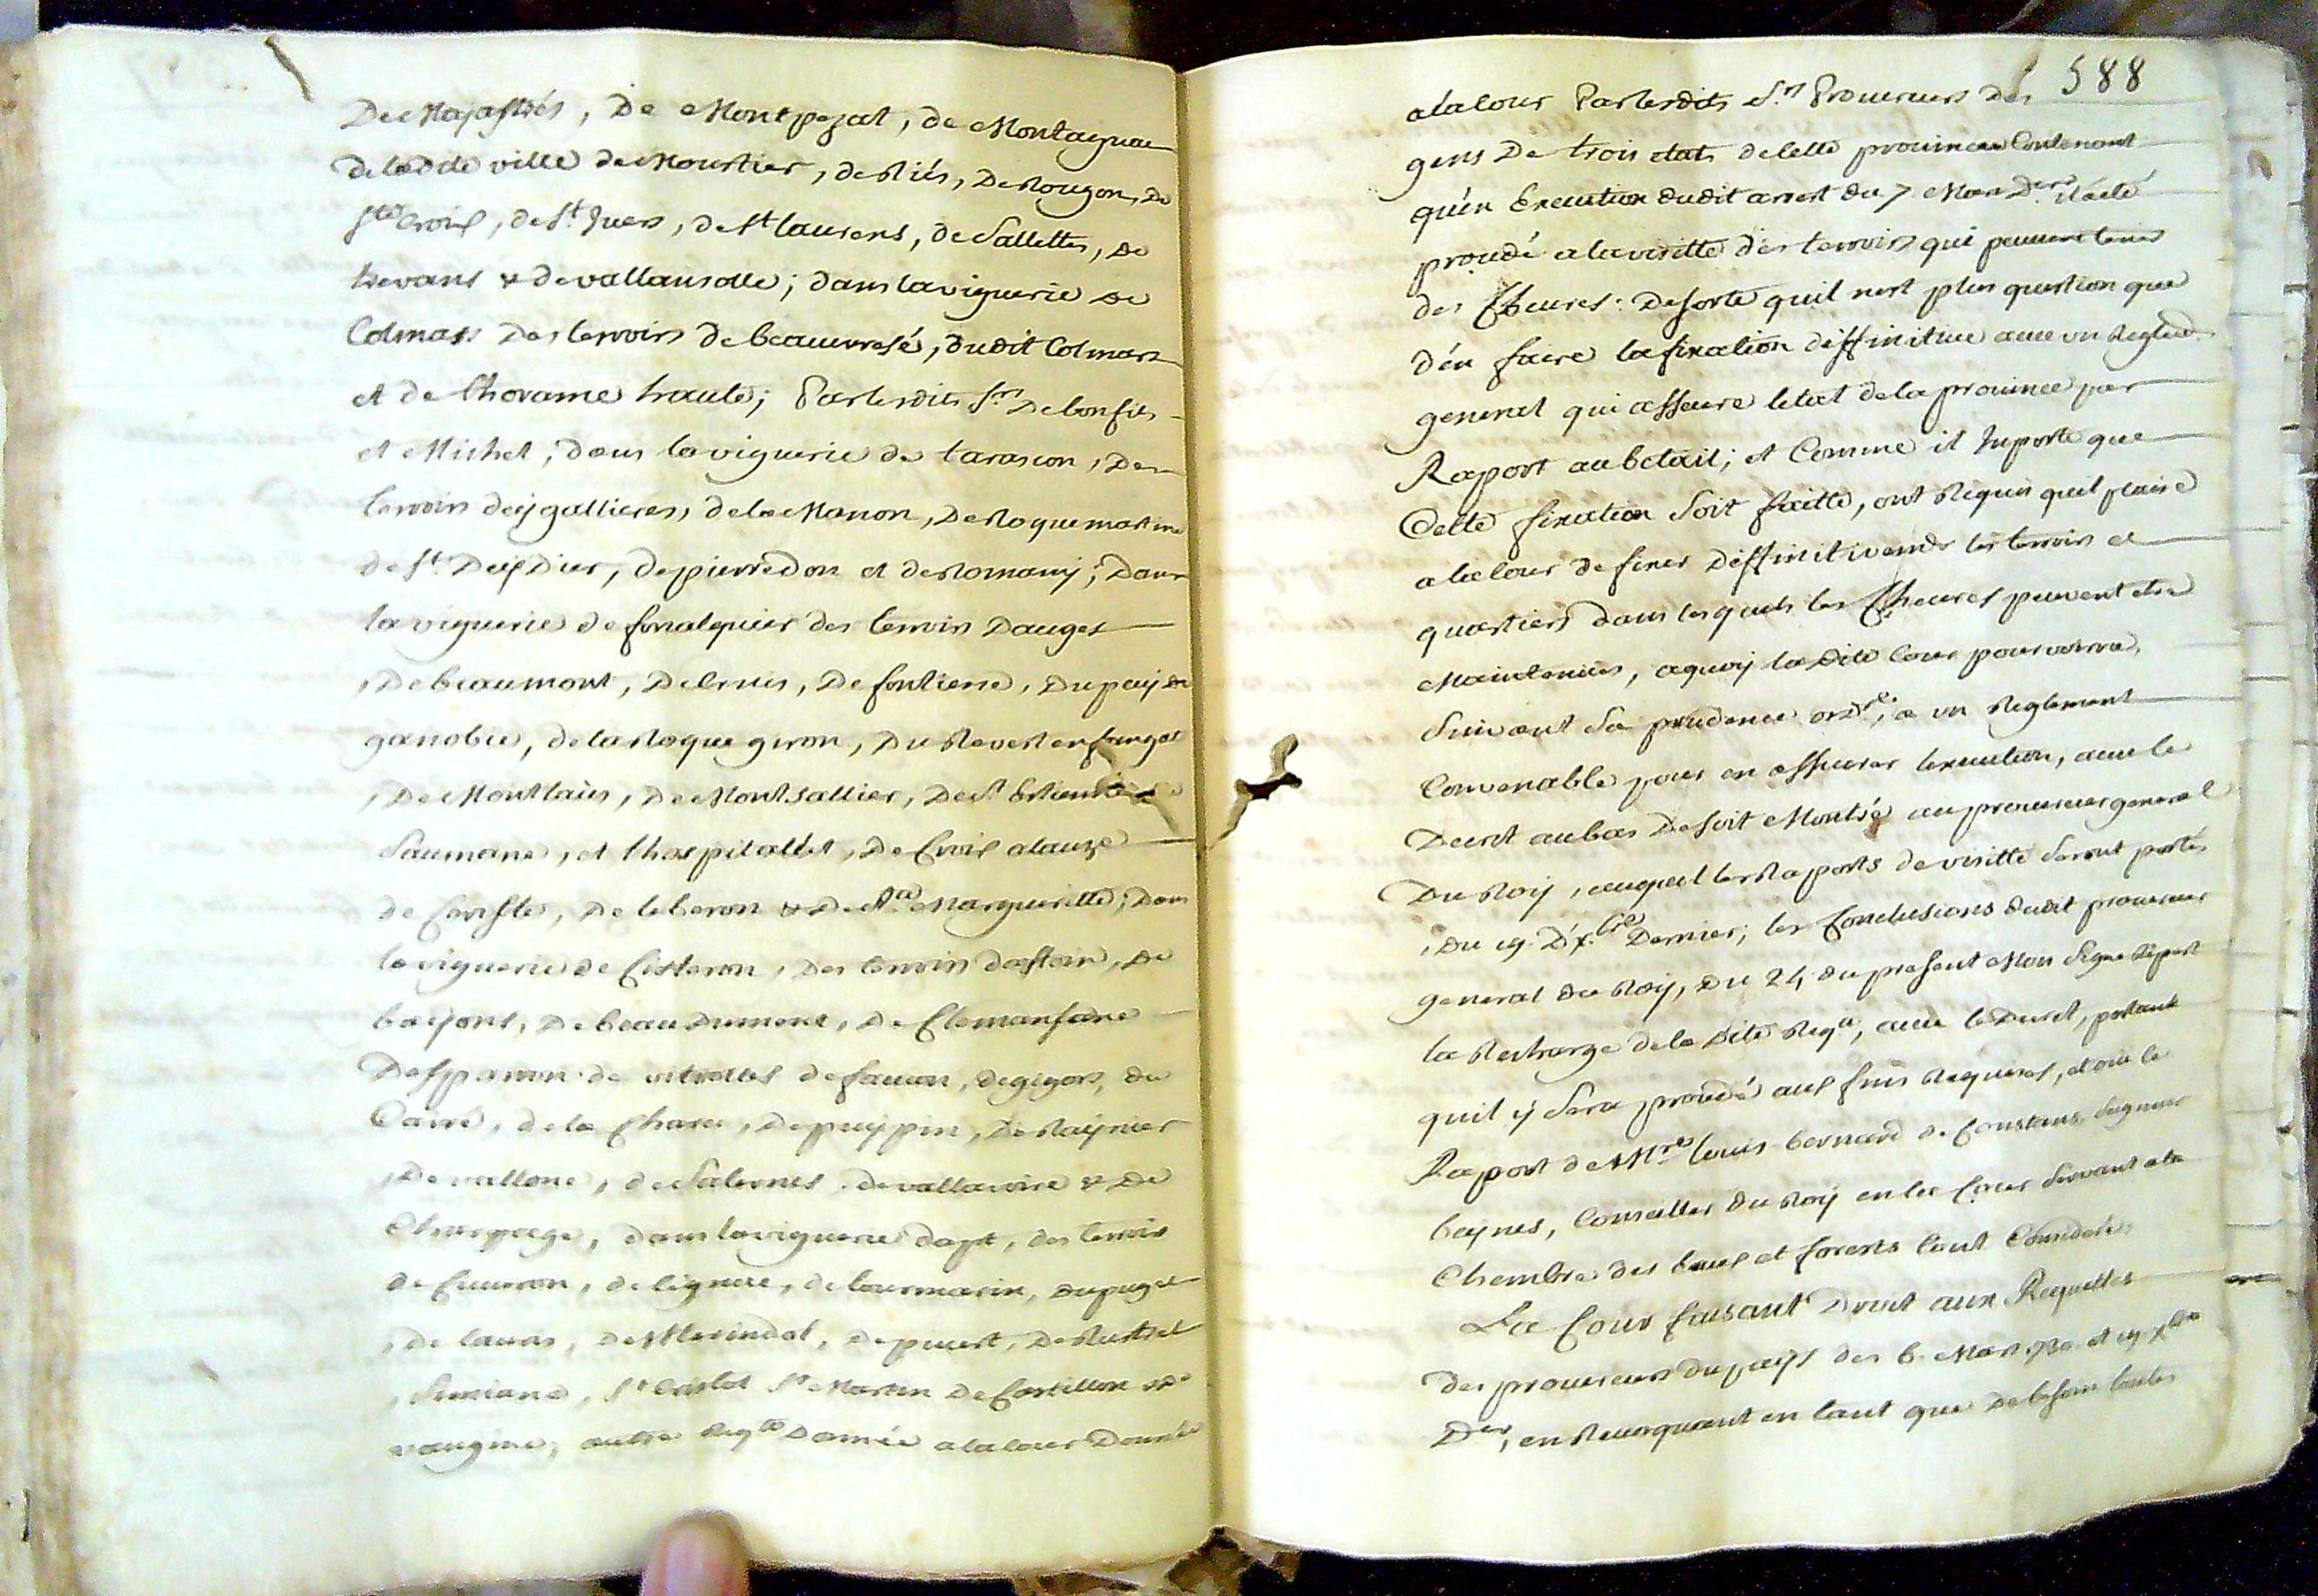 De Majastrés, De Montpezat, de Montagnac
de lad<sup>te</sup> ville de Moustier, de Riés, De Rougon, De
S<sup>te</sup> Croix, de S<sup>t</sup> Juers, de S<sup>t</sup> laurens, de Sallettes, De
trevans & de vallansolle; dans la viguerie De
Colmars Des terroirs de beauvesé, dudit Colmars
et de Thorame haute; Par lesdits S<sup>rs</sup> De bonfils
et Michel, dans la viguerie de tarascon, Des
terroirs deygallieres, de la Manon, De Roquemartine
de S<sup>t</sup> DeyDier, de pierredon et de Romany; Dans
la viguerie de forcalquier des terroirs Dauges
, De beaumont, De Cruis, De fontiene, Du puy De
ganobie, de la Roque giron, Du Revest enfangat
, De Montlaus, De Montsallier, De S<sup>t</sup> Estienne
Saumane, et lhospitallet, De Croix alauze
de Cereste, De leberon & De S<sup>te</sup> Margueritte; Dans
la viguerie de Cisteron, Des terroirs dastoin, De
bayons, De beaudument, De Clemansane
Desparron de vitrolles de faucon, de gigors, du
Caire, de la Charce, De puypin, De Raynier
, De vallone, de Salernes de vallavoire & De
Chargage, dans la viguerie dapt, des terroirs
de Cucuron, de lignane, de lourmarin, Du puget
, de lauris, De Merindol, de puvert, De Rustrel
, Simiane, S<sup>t</sup> S<sup>t</sup> Martin De Castillon &
vaugine, autre Req<sup>te</sup> Donnée a la Cour Donnée
588
a la Cour Par lesdits S<sup>rs</sup> Procureurs Des
gens De trois etats de cette province Contenant
qu'en Execution dudit arrest du 7 Mars D<sup>er</sup> il a eté
procedé a la visitte des terroirs qui peuvent tenir
des Cheures: De sorte quil nest plus question que
d'en faire la fixation diffinitive avec un Reglem<sup>t</sup>
general qui asseure letat de la province par
Raport au betail; et Comme il Inporte que
Cette fixation Soit faitte, ont Requis quil plaise
a la Cour de fixer Diffinitivem<sup>t</sup> les terroirs et
quartiers dans lesquels les Cheures peuvent etre
Maintenües, a quoy la dite Cour pourvoirra,
Suivant Sa prudence ord<sup>re</sup>, a un Reglement
Convenable pour en assurer lexecution, avec le
Decret au bas De soit Montré au procureur general
Du Roy, auquel les Raports de visitte Seront portés
, Du 19. D'x<sup>bre</sup> Dernier; les Conclusions dudit procureur
general du Roy, Du 24 du present Mois Signe Ripert
la Recharge de la Dite Req<sup>te</sup>, avec le Decret, portant
quil y Sera procedé aux fins Requises, et oui le
Raport de M<sup>re</sup> louis bernard de Coustans Seigneur
beynes, Conseiller Du Roy en la Cour Servant a la
Chambre des Eaux et forests tout Consideré
La Cour faisant Droit aux Requettes
des procureurs du pays des 6. Mars et 19 x<sup>bre</sup>
D<sup>er</sup>, en Revoquant en tant que De besoin toutes